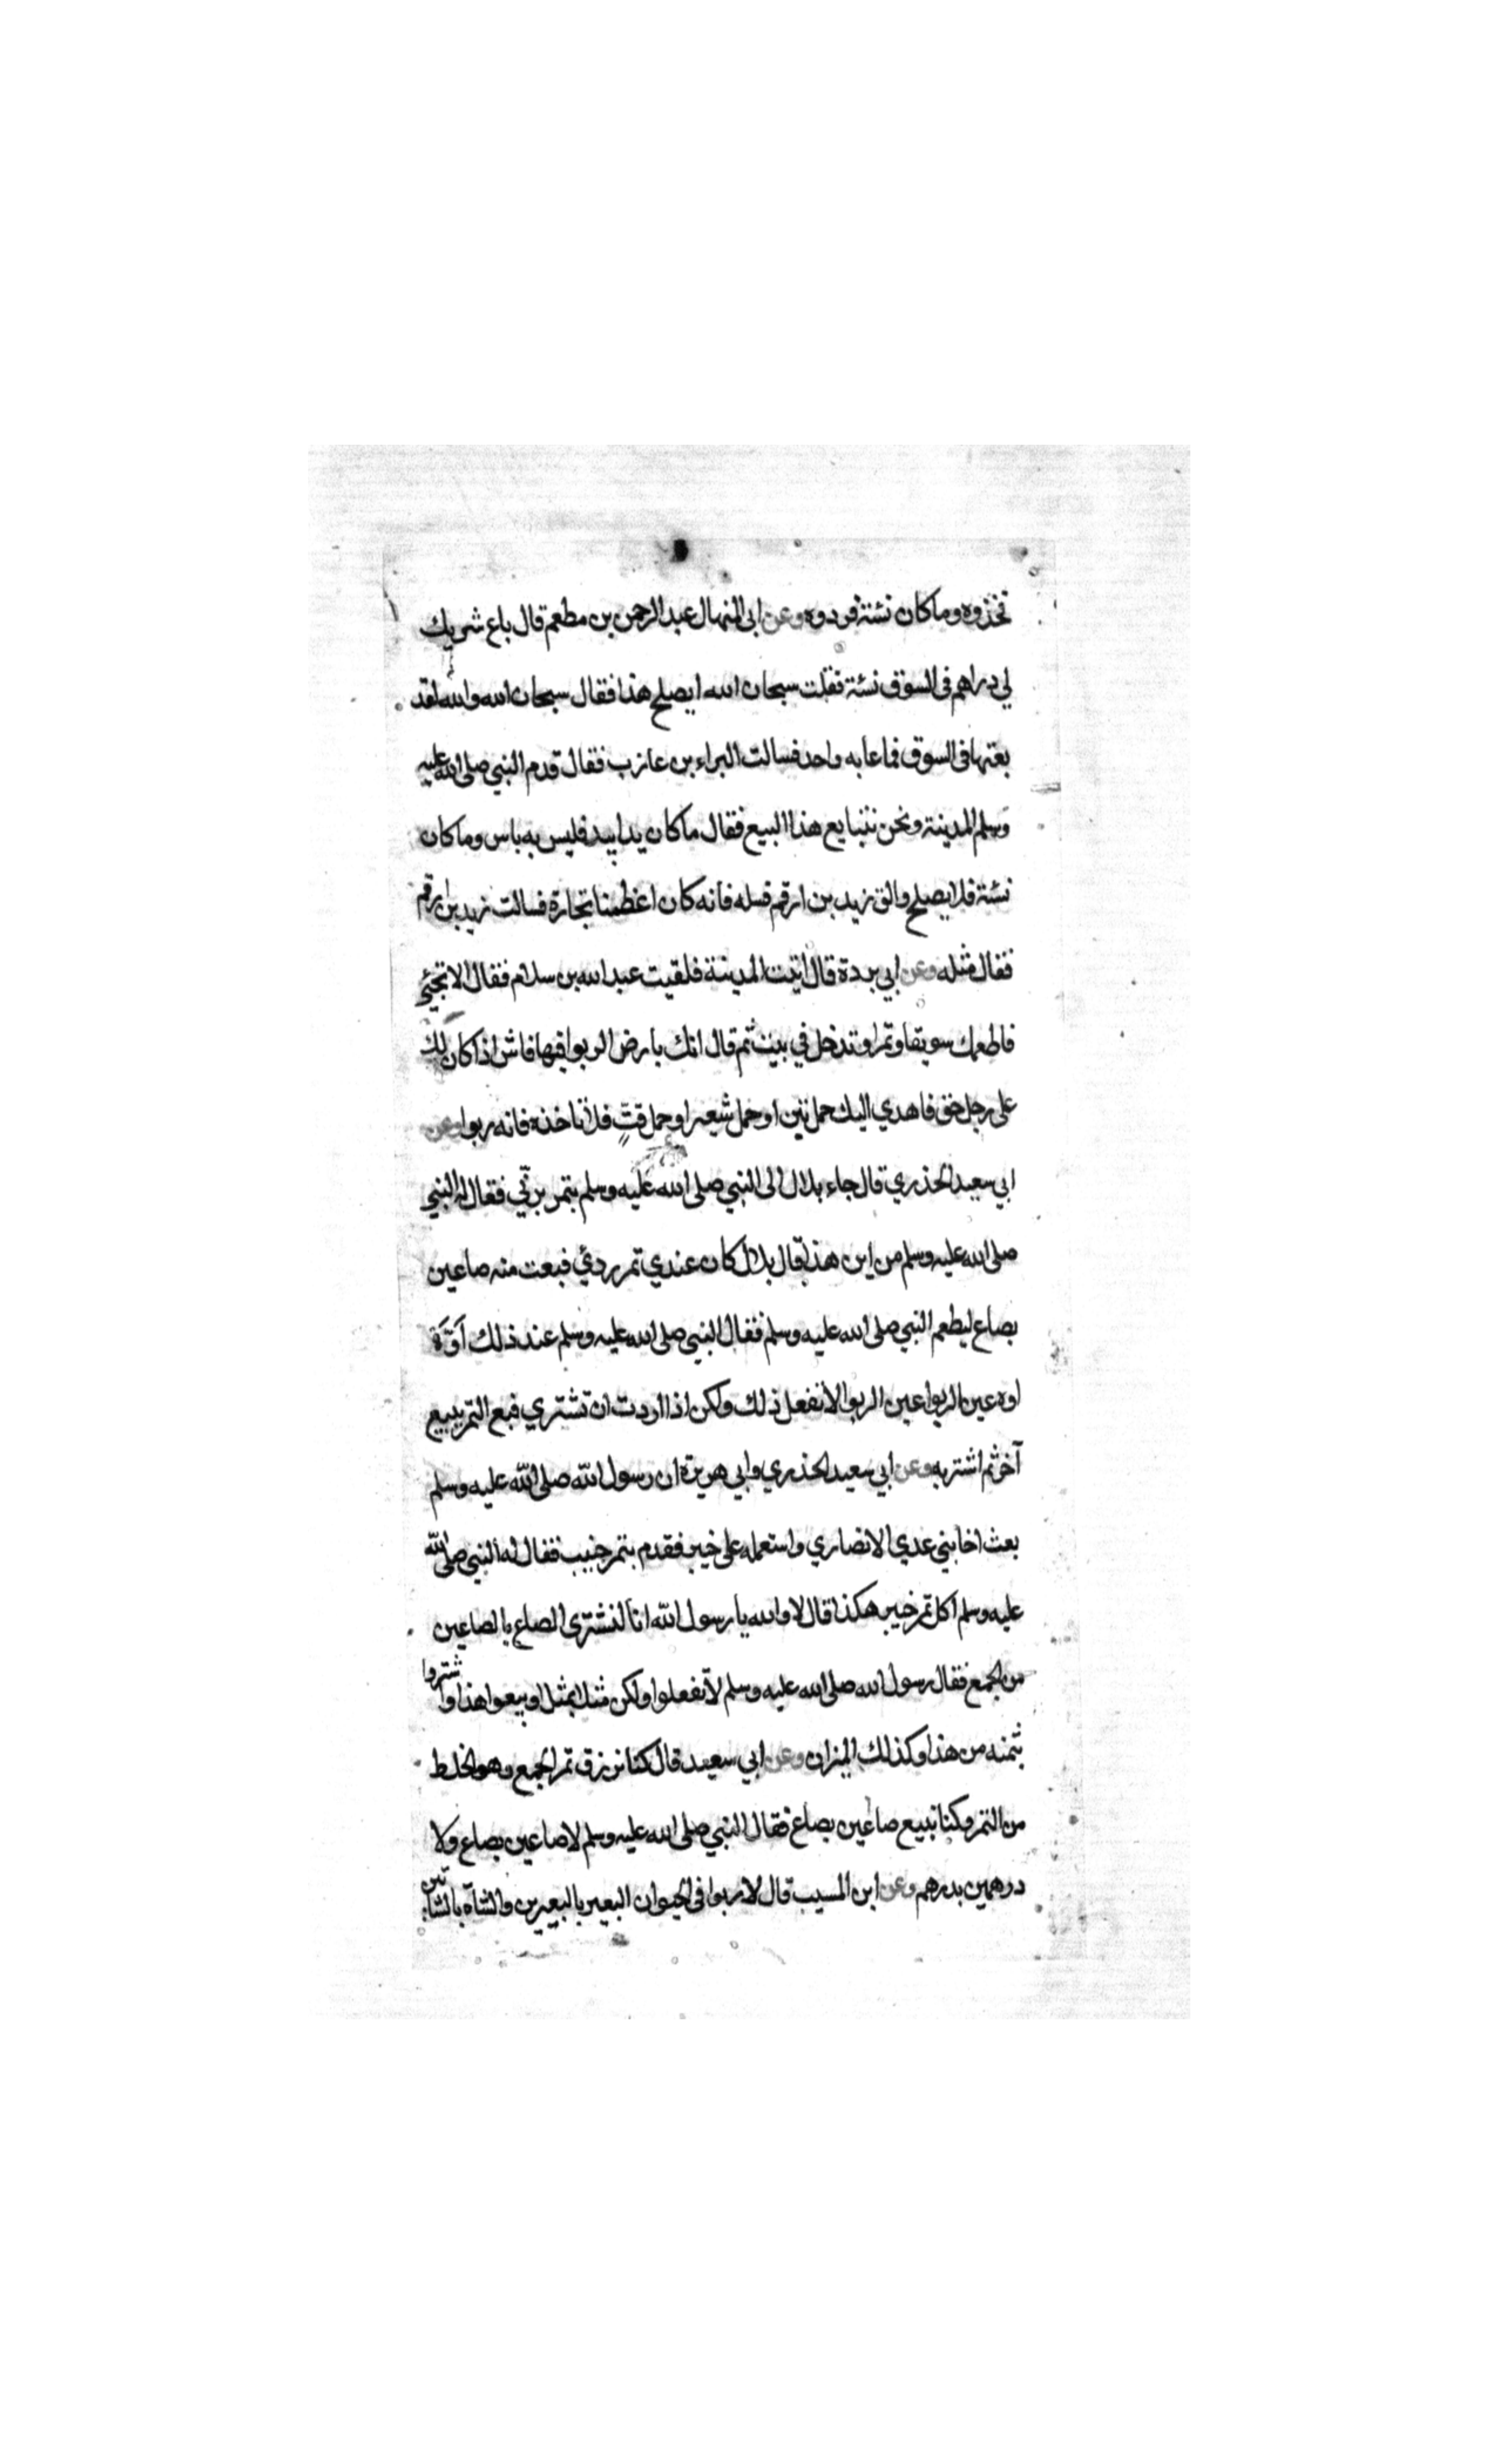 فخذوه وما كان نسئة فردوه وعن ابي المنهال عبد الرحمن بن مطعم قال باع شريك
لي دراهم في السوق نسئة فقلت سبحان الله ايصلح هذا فقال سبحان الله والله لقد
بعتها في السوق فما عابه واحد فسالت البراء بن عازب فقال قدم النبي صلى الله عليه
وسلم المدينة ونحن نتبايع هذا البيع فقال ما كان يدا بيد فليس به باس وما كان
نسئة فلا يصلح والق زيد بن ارقم فسله فانه كان اعظمنا تجارة فسالت زيد بن ارقم
فقال مثله وعن ابي بردة قال اتيت المدينة فلقيت عبد الله بن سلام فقال الا تجئ
فاطعمك سويقا وتمرا وتدخل في بيت ثم قال انك بارض الربوا فيها فاش اذا كان لك
على رجل حق فاهدي اليك حمل تبن او حمل شعير او حمل قتٍّ فلا تاخذه فانه ربوا وعن
ابي سعيد الخدري قال جاء بلال الى النبي صلى الله عليه وسلم بتمر برنّي فقال له النبي
صلى الله عليه وسلم من اين هذا قال بلال كان عندي تمر ردئ فبعت منه صاعين
بصاع ليطعم النبي صلى الله عليه وسلم فقال النبي صلى الله عليه وسلم عند ذلك اَوَّه
اوه عين الربوا عين الربوا لا تفعل ذلك ولكن اذا اردت ان تشتري فبع التمر ببيع
آخر ثم اشتر به وعن ابي سعيد الخدري وابي هريرة ان رسول الله صلى الله عليه وسلم
بعث اخا بني عدي الانصاري واستعمله على خيبر فقدم بتمر جنيب فقال له النبي صلى الله
عليه وسلم اكل تمر خيبر هكذا قال لا والله يا رسول الله انا لنشتري الصاع بالصاعين
من الجمع فقال رسول الله صلى الله عليه وسلم لا تفعلوا ولكن مثلا بمثل او بيعوا هذا واشتروا
بثمنه من هذا وكذلك الميزان وعن ابي سعيد قال كنا نرزق تمر الجمع وهو الخلط
من التمر وكنا نبيع صاعين بصاع فقال النبي صلى الله عليه وسلم لا صاعين بصاع ولا
درهمين بدرهم وعن ابن المسيب قال لا ربوا في الحيوان البعير بالبعيرين والشاة بالشاتين